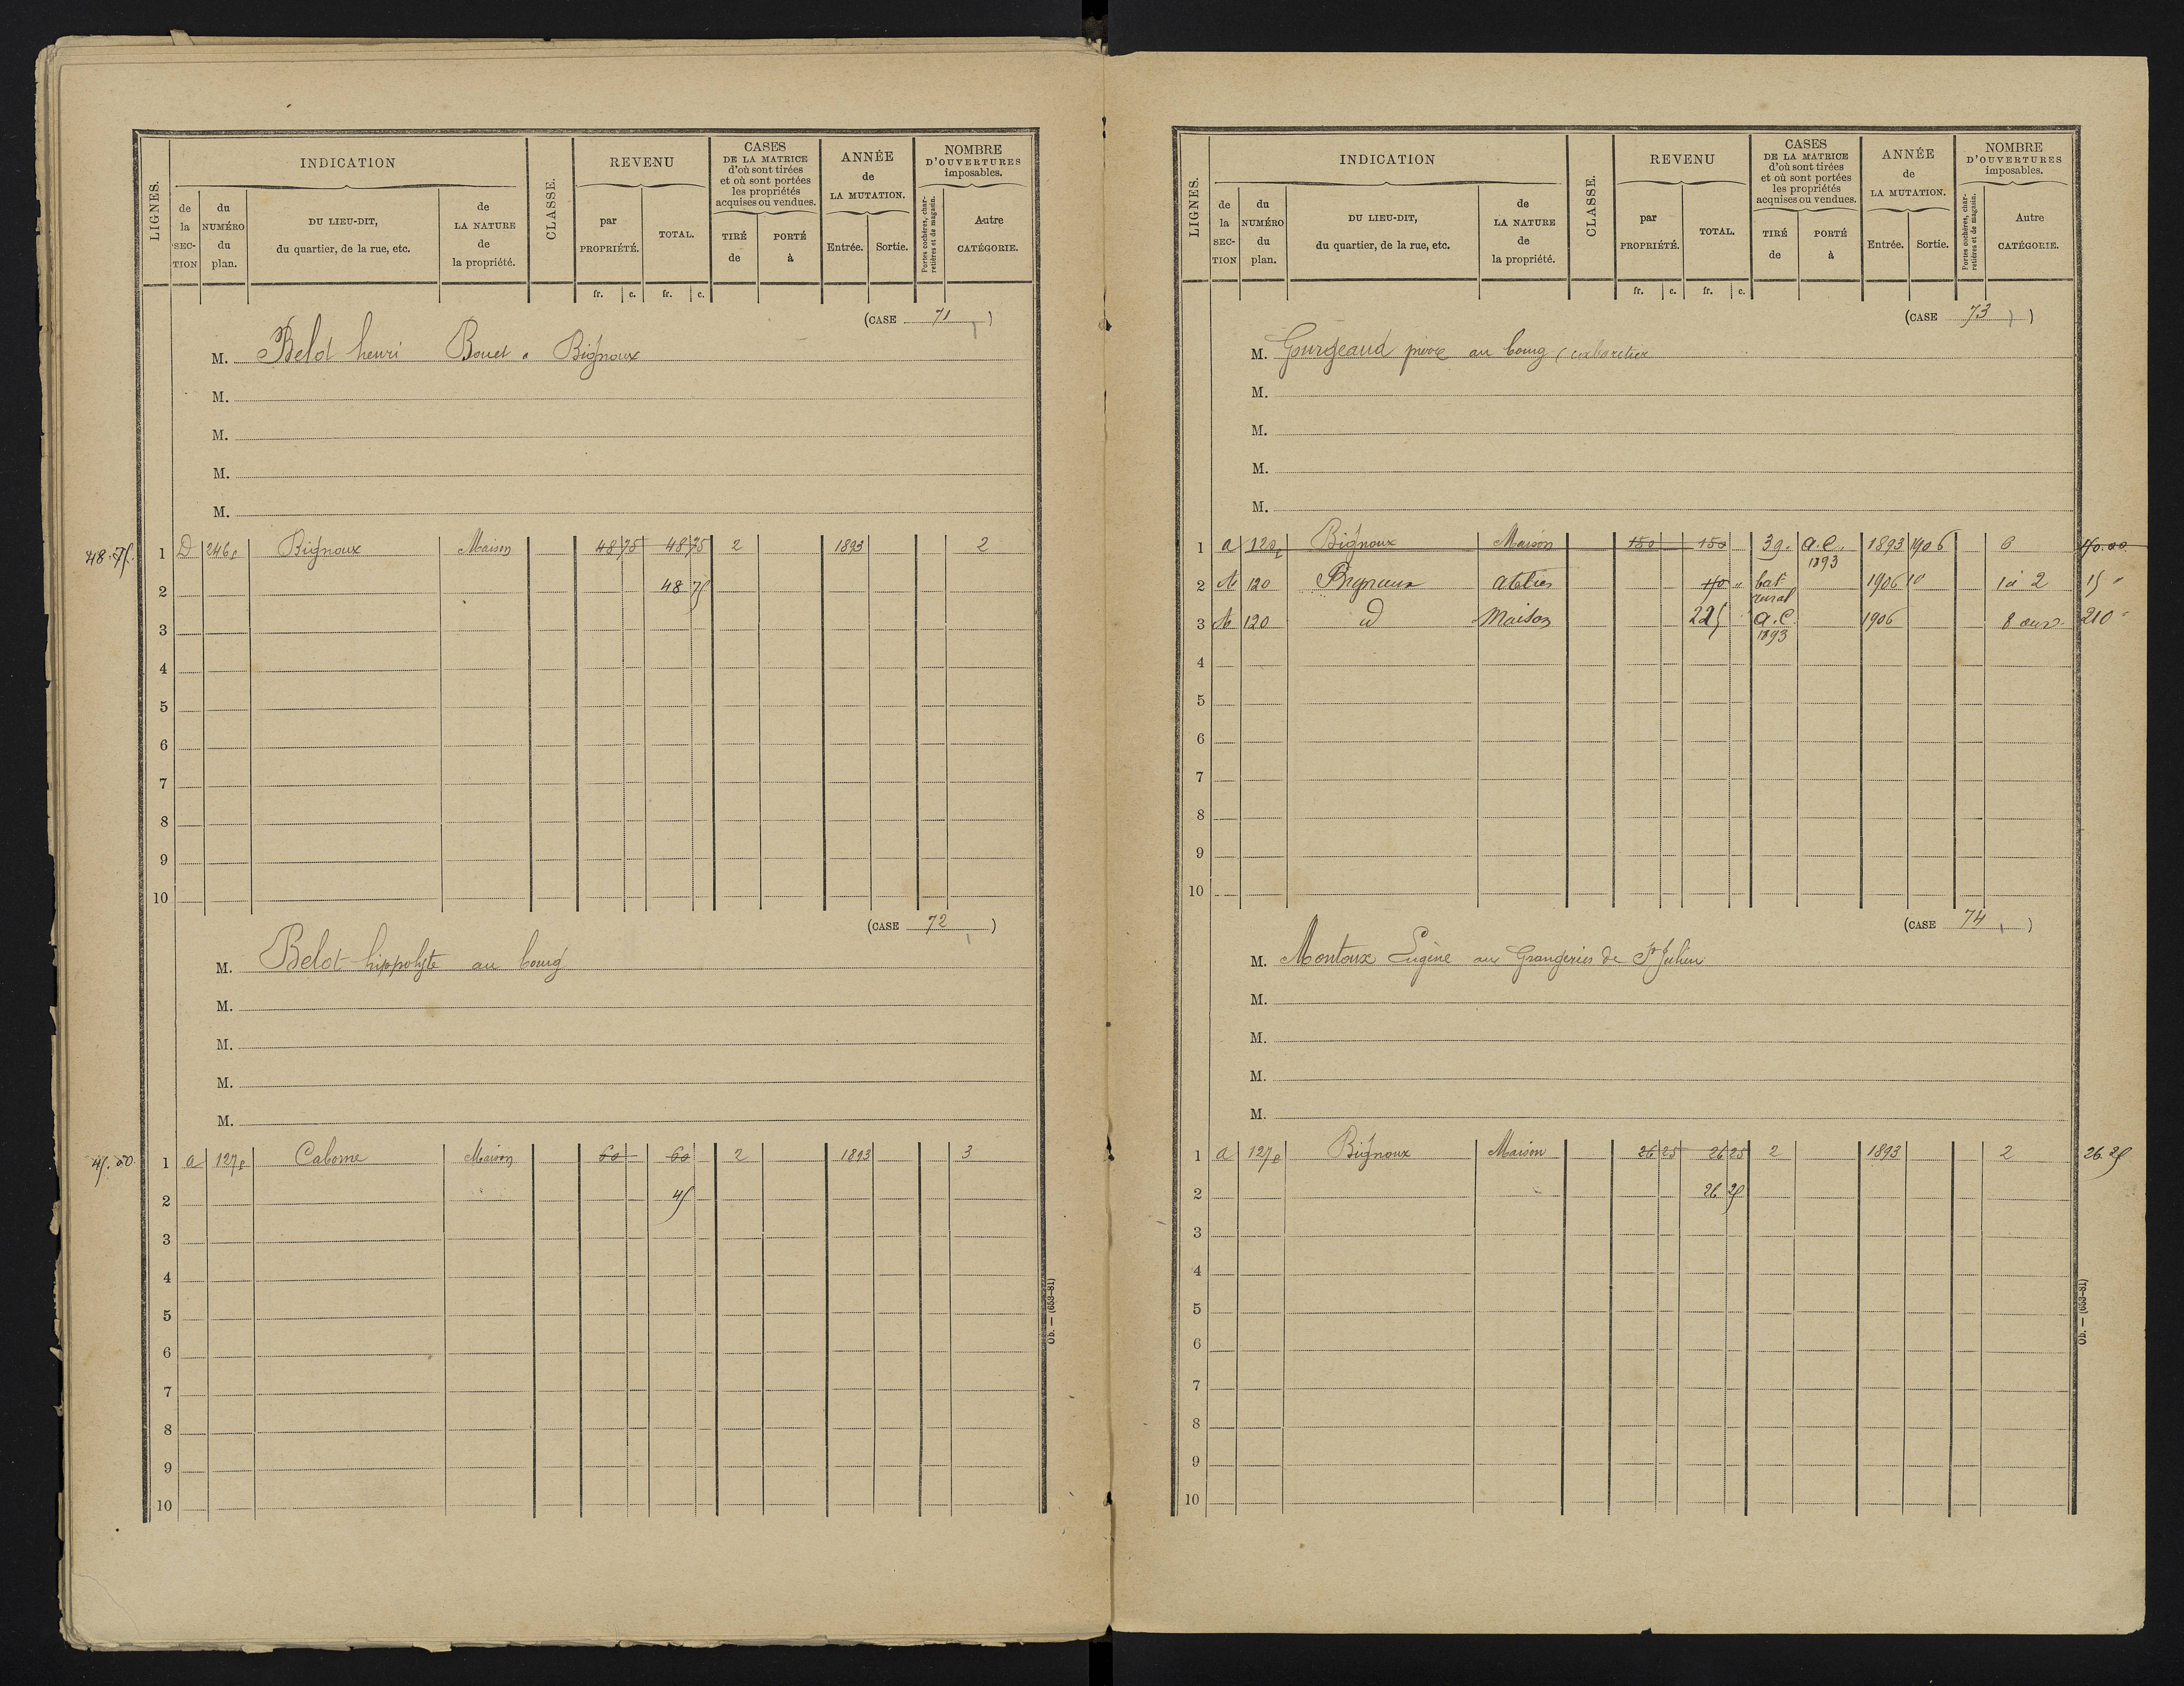 LIGNES.
INDICATION
de la SECTION
du NUMÉRO du plan.
DU LIEU-DIT, du quartier, de la rue, etc.
de LA NATURE de la propriété.
CLASSE.
REVENU
par PROPRIÉTÉ.
TOTAL.
fr. c. fr. c.
CASES DE LA MATRICE d'où sont tirées et où sont portées les propriétés acquises ou vendues.
TIRÉ de
PORTÉ à
ANNÉE de LA MUTATION.
Entrée. Sortie.
NOMBRE D'OUVERTURES imposables.
Portes cochères, charretières et de magasin.
Autre CATÉGORIE.
(CASE 71)
M. Belot henri Bouet a Bignoux
M.
M.
M.
M.
48.75. 1 D 246p Bignoux Maison 48 75 48 75 2 1893 2
2 48 75
3
4
5
6
7
8
9
10
(CASE 72)
M. Belot hippolyte au bourg
M.
M.
M.
M.
45.00 1 a 127p Caborne Maison 60 60 2 1893 3
2 45
3
4
5
6
7
8
9
10
Ob. — (653-81)
LIGNES.
INDICATION
de la SECTION
du NUMÉRO du plan.
DU LIEU-DIT, du quartier, de la rue, etc.
de LA NATURE de la propriété.
CLASSE.
REVENU
par PROPRIÉTÉ.
TOTAL.
fr. c. fr. c.
CASES DE LA MATRICE d'où sont tirées et où sont portées les propriétés acquises ou vendues.
TIRÉ de
PORTÉ à
ANNÉE de LA MUTATION.
Entrée. Sortie.
NOMBRE D'OUVERTURES imposables.
Portes cochères, charretières et de magasin.
Autre CATÉGORIE.
(CASE 73)
M. Gourgeaud au bourg (cabaretier
M.
M.
M.
M.
1 a 120p Bignoux Maison 150 150 39. a.C. 1893 1893 1906 6 150.00
2 A 120 Bignoux atelier 150 " bat rural 1906 10 1 à 2 15 "
3 A 120 d Maison 225 a.C. 1893 1906 8 ouv. 210 "
4
5
6
7
8
9
10
(CASE 74)
M. Montoux Eugène aux Grangeries de St Julien
M.
M.
M.
M.
1 a 127p Bignoux Maison 26 25 26 25 2 1893 2 26.25
2 26 25
3
4
5
6
7
8
9
10
Ob. — (653-81)